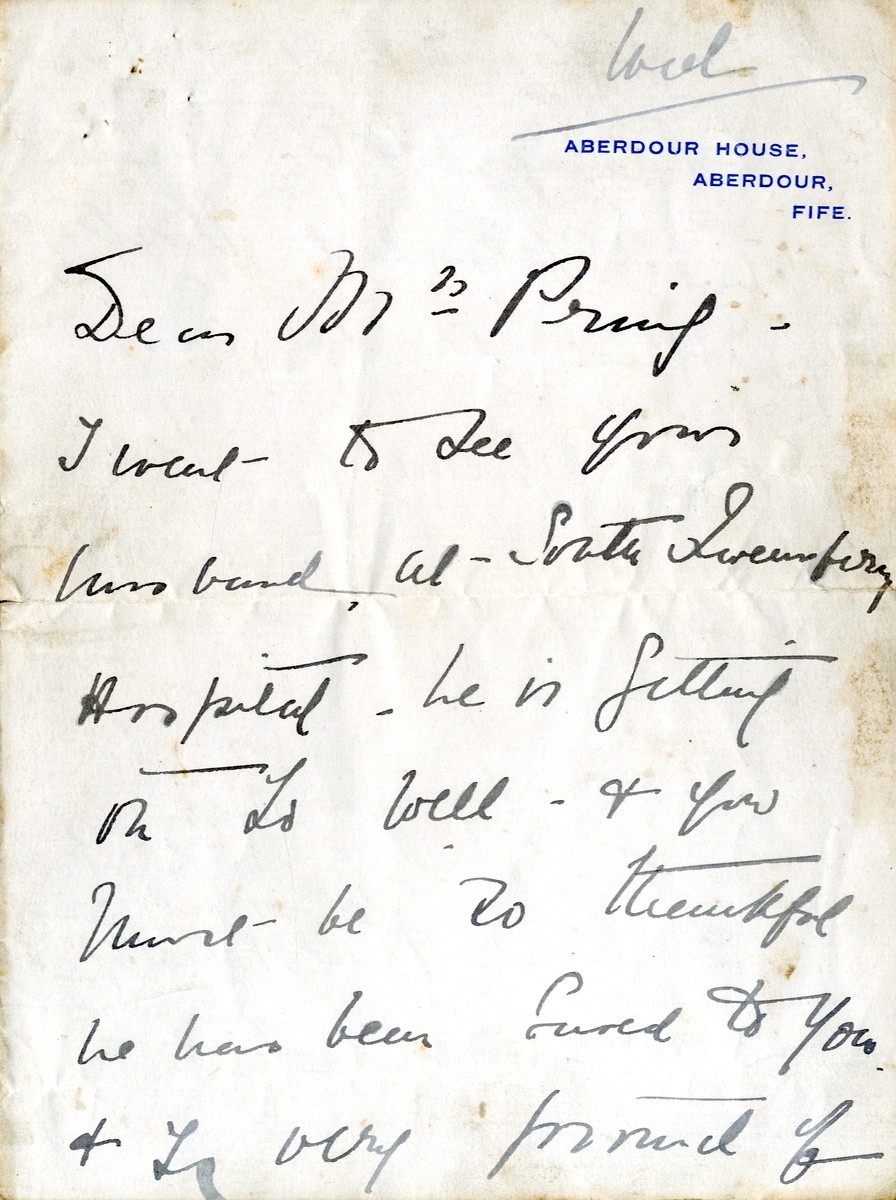 Wed
ABERDOUR HOUSE,
ABERDOUR,
FIFE.
Dear Mrs Pring -
I went to see your
husband, at - South Queensferry
Hospital - he is getting
on so well - & you
must be so thankful
he has been saved to you.
& so very proud of